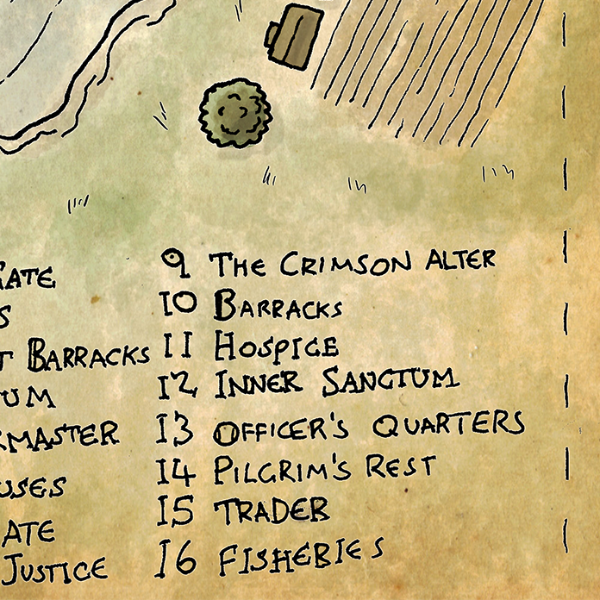 GATE
S
T BARRACKS
UM
RMASTER
USES
ATE
JUSTICE
9 THE CRIMSON ALTER
10 BARRACKS
11 HOSPICE
12 INNER SANCTUM
13 OFFICER'S QUARTERS
14 PILGRIM'S REST
15 TRADER
16 FISHERIES